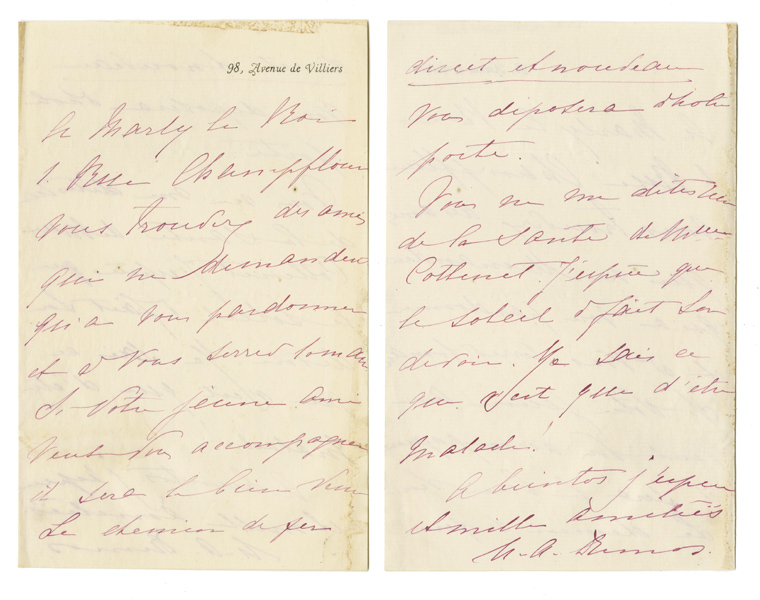 98, Avenue de Villiers
à Marly le Roi
1. Rue Champflour
vous trouverez des amis
qui ne demandent
qu'a vous pardonner
et à vous serrer la main
Si votre jeune ami
veut vous accompagner
il sera le bien venu
Le chemin de fer
discret et nouveau
vous déposera à votre
porte.
Vous ne me dites rien
de la santé de Mme
Cottenet. J'espère que
le soleil a fait son
devoir. Je sais ce
que c'est que d'être
malade!
A bientot j'espere
et mille amitiés
A. Dumas.